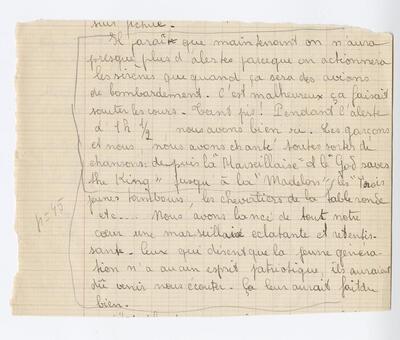 sur pchue.
Il paraît que maintenant on n'aura
presque plus d'alertes parceque on actionnera
les sirènes que quand ça sera des avions
de bombardement. C'est malheureux ça faisait
sauter les cours. Tant pis! Pendant l'alerte
d 1h 1/2 nous avons bien ri. Les garçons
et nous nous avons chanté toutes sortes de
chansons: depuis la "Marseillaise" et le "God saves
the King" jusqu'à la "Madelon", les "Trois
jeunes tambours, les chevaliers de la table ronde
etc.... Nous avons lancé de tout notre
cœur une marseillaise éclatante et retentis-
sante. Ceux qui disent que la jeune généra-
tion n'a aucun esprit patriotique, ils auraient
dû venir nous écouter. Ça leur aurait fait du
bien.
p=45